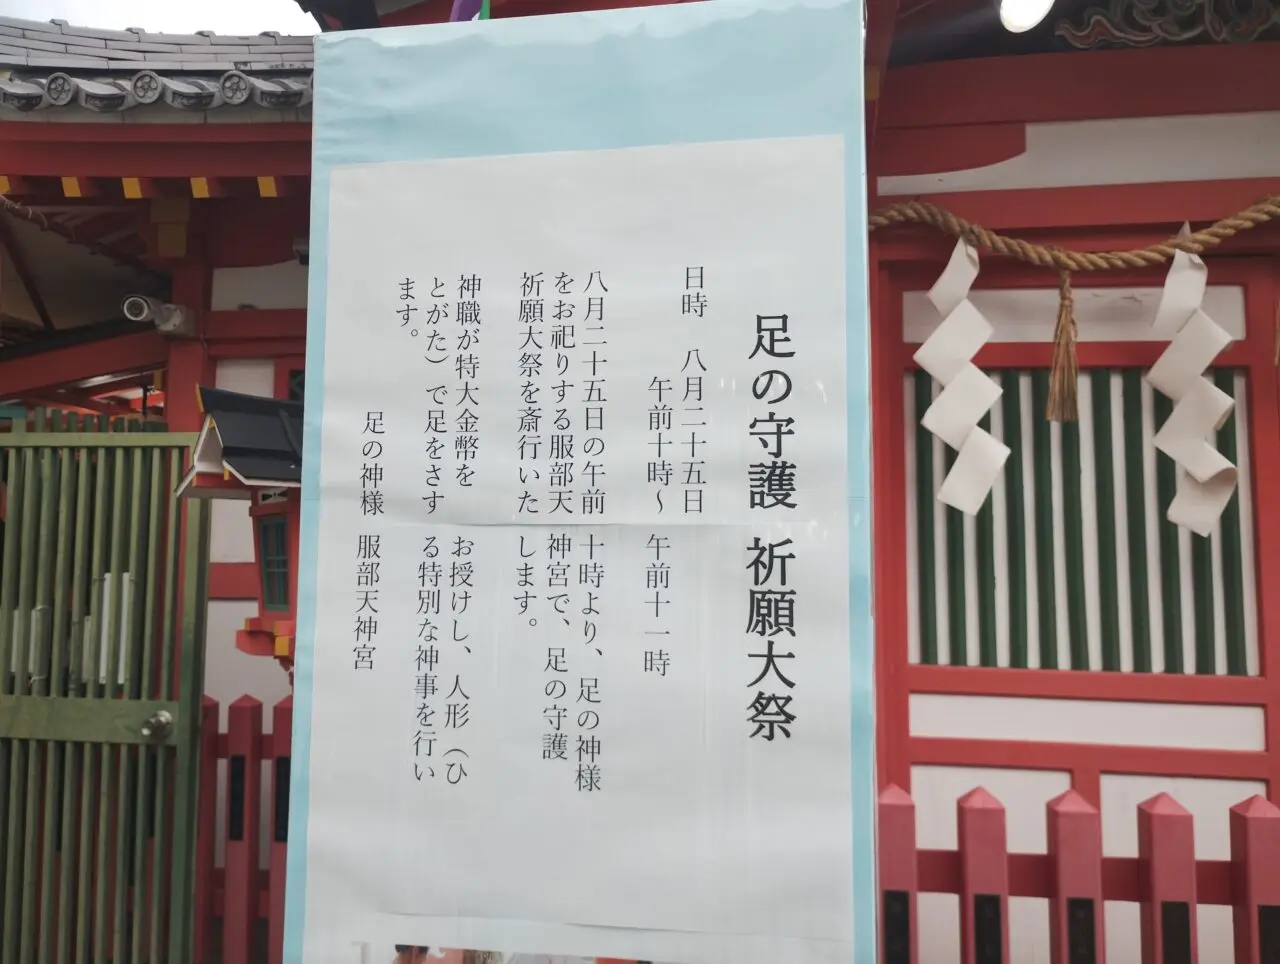 足の守護 祈願大祭
日時 八月二十五日
午前十時～ 午前十一時
八月二十五日の午前十時より、足の神様
をお祀りする服部天神宮で、足の守護
祈願大祭を斎行いたします。
神職が特大金幣をお授けし、人形（ひ
とがた）で足をさする特別な神事を行い
ます。
足の神様 服部天神宮